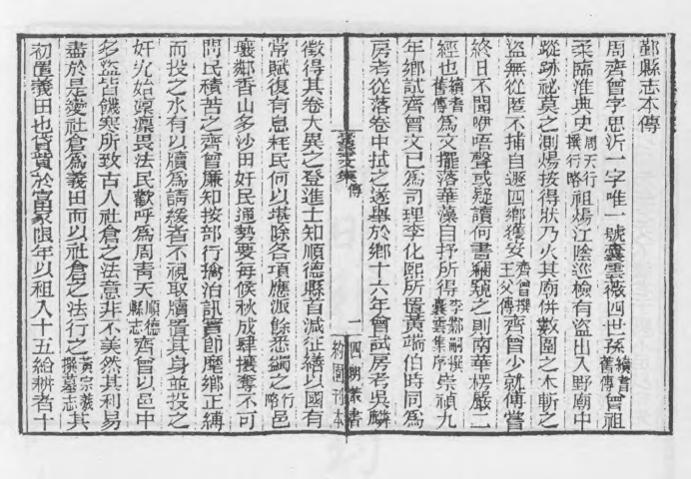 鄞縣志本傳
周齊曾字思沂一字唯一號囊雲薇四世孫續耆舊傳曾祖
柔臨淮典史周天行撰行略祖煬江陰巡檢有盜出入野廟中
蹤跡祕莫之測煬按得狀乃火其廟併數圍之木斬之
盜無從匿不捕自遯四鄉獲安齊曾撰王父傳齊曾少就傅嘗
終日不聞咿唔聲或疑讀何書竊窺之則南華楞嚴二
經也續耆舊傳為文擺落華藻自抒所得李鄴嗣撰囊雲集序崇禎九
年鄉試齊曾文已為司理李化熙所置黃端伯時同為
房考從落卷中拭之遂舉於鄉十六年會試房考吳麟
囊雲文集 傳
一
四明叢書
約園刊本
徵得其卷大異之登進士知順德縣首減征繕以國有
常賦復有息耗民何以堪除各項應派餘悉蠲之行略邑
壤鄰香山多沙田奸民通勢要每候秋成肆攘奪不可
問民積苦之齊曾廉知按部行擒治訊實卽麾鄉正縛
而投之水有以牘為請緩者不視取牘置其身並投之
奸宄始凜凜畏法民歡呼為周青天順德縣志齊曾以邑中
多盜皆饑寒所致古人社倉之法意非不美然其利易
盡於是變社倉為義田而以社倉之法行之黃宗羲撰墓志其
初置義田也貸貲於富家限年以租入十五給耕者十